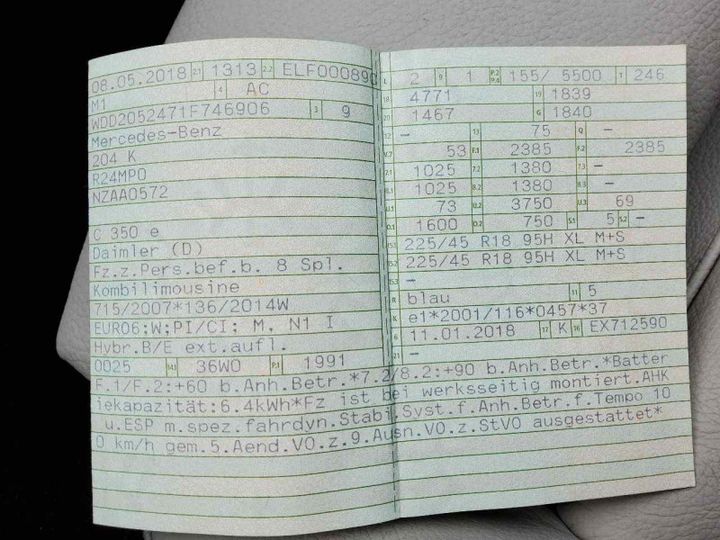 08.05.2018 2.1 1313 2.2 ELF00089C
M1 4 AC
WDD2052471F746906 3 9
Mercedes-Benz
204 K
R24MP0
NZAA0572
C 350 e
Daimler (D)
Fz.z.Pers.bef.b. 8 Spl.
Kombilimousine
715/2007*136/2014W
EURO6;W;PI/CI; M, N1 I
Hybr.B/E ext.aufl.
0025 14.1 36W0 P.1 1991
L 2 9 1 P.2 P.4 155/ 5500 T 246
18 4771 19 1839
20 1467 G 1840
12 – 13 75 Q –
V.7 53 F.1 2385 F.2 2385
7.1 1025 7.2 1380 7.3 –
8.1 1025 8.2 1380 8.3 –
U.1 73 U.2 3750 U.3 69
O.1 1600 O.2 750 S.1 5 S.2 –
15.1 225/45 R18 95H XL M+S
15.2 225/45 R18 95H XL M+S
15.3 –
R blau 11 5
K e1*2001/116*0457*37
6 11.01.2018 17 K 16 EX712590
21 –
F.1/F.2:+60 b.Anh.Betr.*7.2/8.2:+90 b.Anh.Betr.*Batter
iekapazität:6.4kWh*Fz ist bei werksseitig montiert.AHK
u.ESP m.spez.fahrdyn.Stabi.Syst.f.Anh.Betr.f.Tempo 10
0 km/h gem.5.Aend.VO.z.9.Ausn.VO.z.StVO ausgestattet*